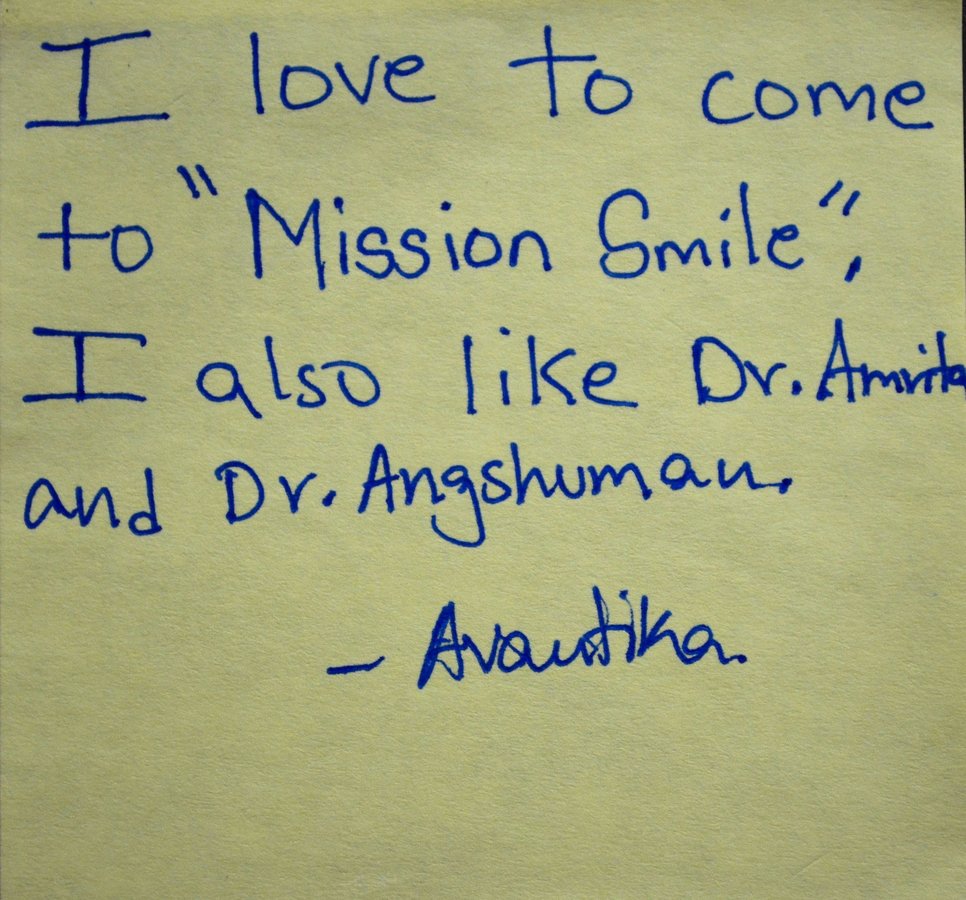 I love to come
to "Mission Smile",
I also like Dr. Amrita
and Dr. Angshuman.
- Avantika.